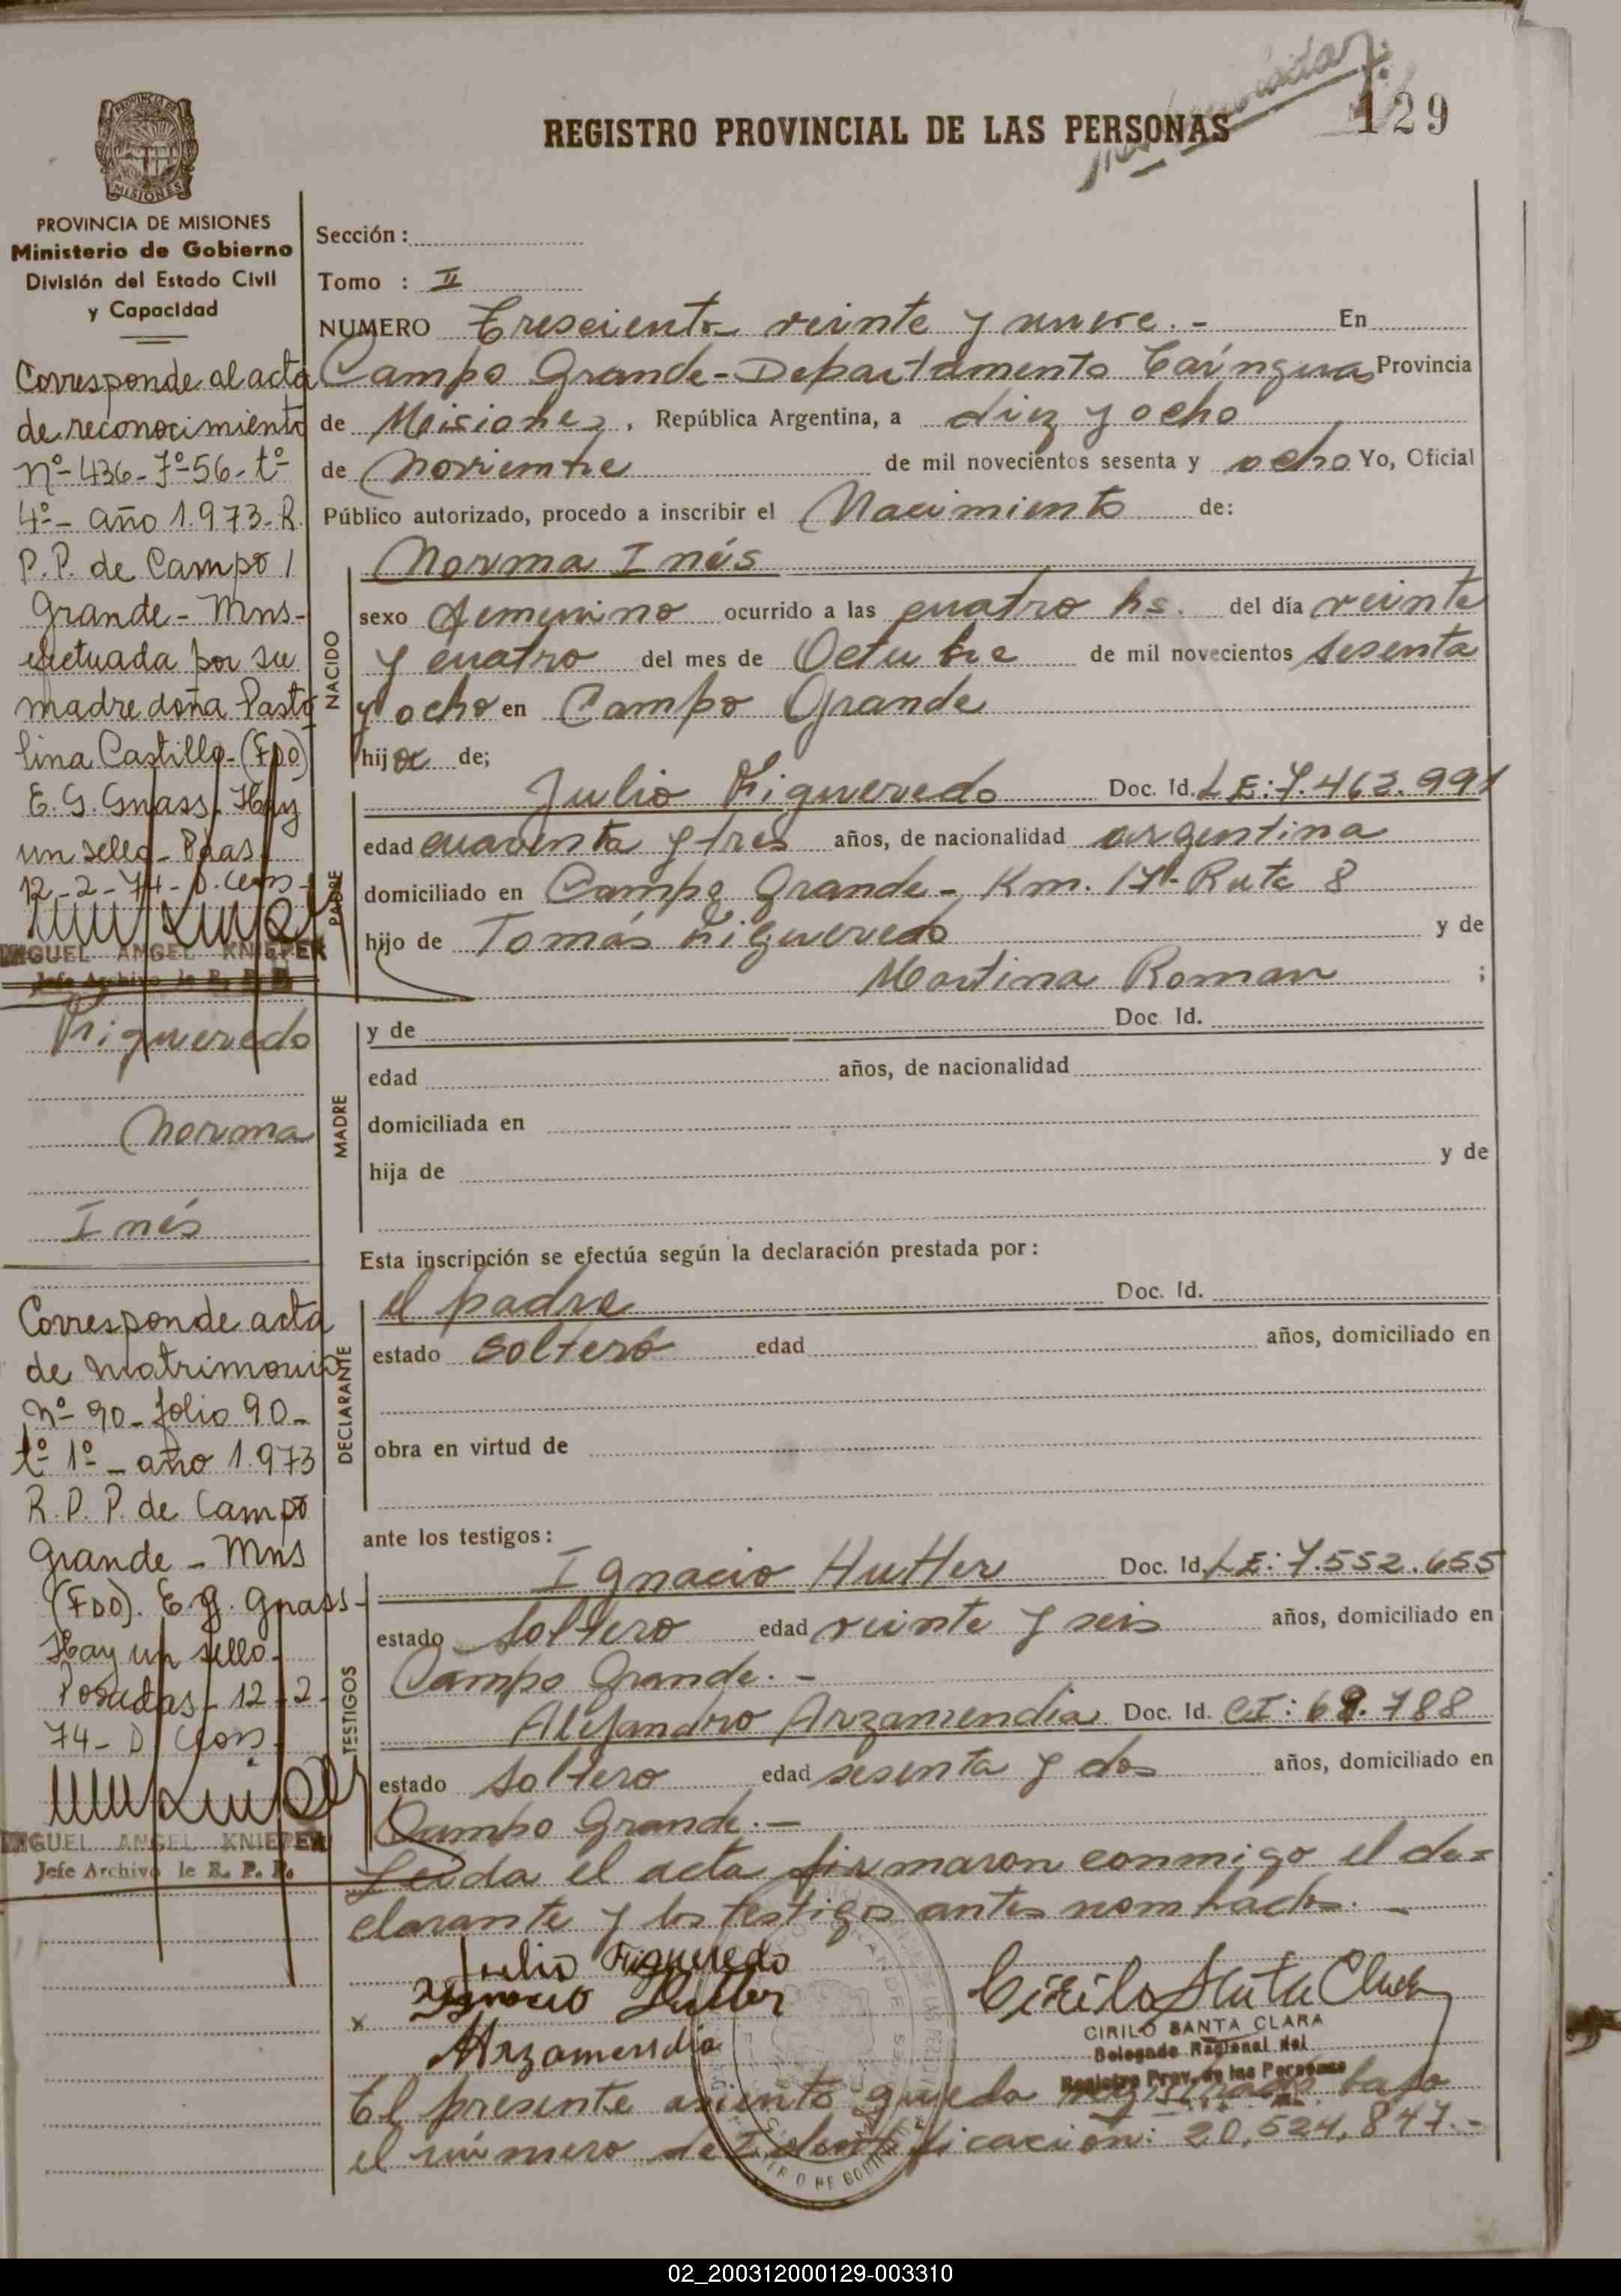 129
REGISTRO PROVINCIAL DE LAS PERSONAS
PROVINCIA DE
MISIONES
PROVINCIA DE MISIONES
Ministerio de Gobierno
División del Estado Civil
y Capacidad
Corresponde al acta
de reconocimiento
nº 436-Fº 56-tº
4º - año 1.973-R.
P.P. de Campo
Grande - Mns-
efectuada por su
madre doña Pasto
lina Castillo-(FDO)
E. G. Gnass. Hay
un sello - Pdas
12-2-74-D.
MIGUEL ANGEL KNIEPER
Jefe Archivo R. P. P.
Figueredo
Norma
Inés
Corresponde acta
de matrimonio
nº 90-folio 90-
tº 1º - año 1.973
R. P. P. de Campo
Grande - Mns
(FDO). E. G. Gnass-
Hay un sello-
Posadas-12-2-
74-D
MIGUEL ANGEL KNIEPER
Jefe Archivo R. P. P.
Sección :
Tomo : II
NUMERO Tresciento veinte y nueve.- En
Campo Grande-Departamento Caingua Provincia
de Misiones, República Argentina, a diez y ocho
de Noviembre de mil novecientos sesenta y ocho Yo, Oficial
Público autorizado, procedo a inscribir el Nacimiento de:
Norma Inés
NACIDO
sexo femenino ocurrido a las cuatro hs. del día veinte
y cuatro del mes de Octubre de mil novecientos sesenta
y ocho en Campo Grande
hija de;
PADRE
Julio Figueredo Doc. Id. LE: 7.463.991
edad cuarenta y tres años, de nacionalidad argentina
domiciliado en Campo Grande - Km. 17-Ruta 8
hijo de Tomás Figueredo y de
Martina Roman ;
MADRE
y de Doc. Id.
edad años, de nacionalidad
domiciliada en
hija de y de
Esta inscripción se efectúa según la declaración prestada por :
DECLARANTE
el padre Doc. Id.
estado soltero edad años, domiciliado en
obra en virtud de
ante los testigos :
TESTIGOS
Ignacio Hutter Doc. Id. LE: 7.552.655
estado soltero edad veinte y seis años, domiciliado en
Campo Grande.-
Alejandro Arzamendia Doc. Id. CI: 69.788
estado soltero edad sesenta y dos años, domiciliado en
Campo Grande.-
Leida el acta firmaron conmigo el de=
clarante y los testigos antes nombrados.-
Julio Figueredo
x Ignacio Hutter
Arzamendia
Cirilo Santa Clara
CIRILO SANTA CLARA
Delegado Regional del
Registro Prov. de las Personas
El presente asiento queda registrado bajo
el número de Identificación: 20,524,847.-
02_200312000129-003310